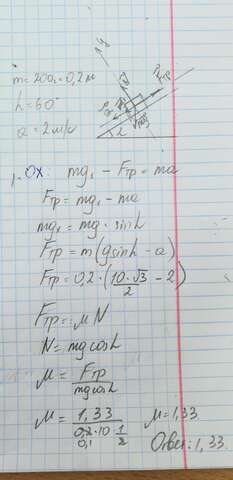 y
m = 200г = 0,2 м
h = 60°
a = 2 м/с
Fтр
mg
α
1. OX: mgₓ - Fтр = ma
Fтр = mgₓ - ma
mgₓ = mg · sinh
Fтр = m(gsinh - a)
Fтр = 0,2 · (10·√3/2 - 2)
Fтр = μN
N = mgcosh
μ = Fтр/mgcosh
μ = 1,33/(0,2·10 1/2) μ = 1,33
0,1
Ответ: 1,33.